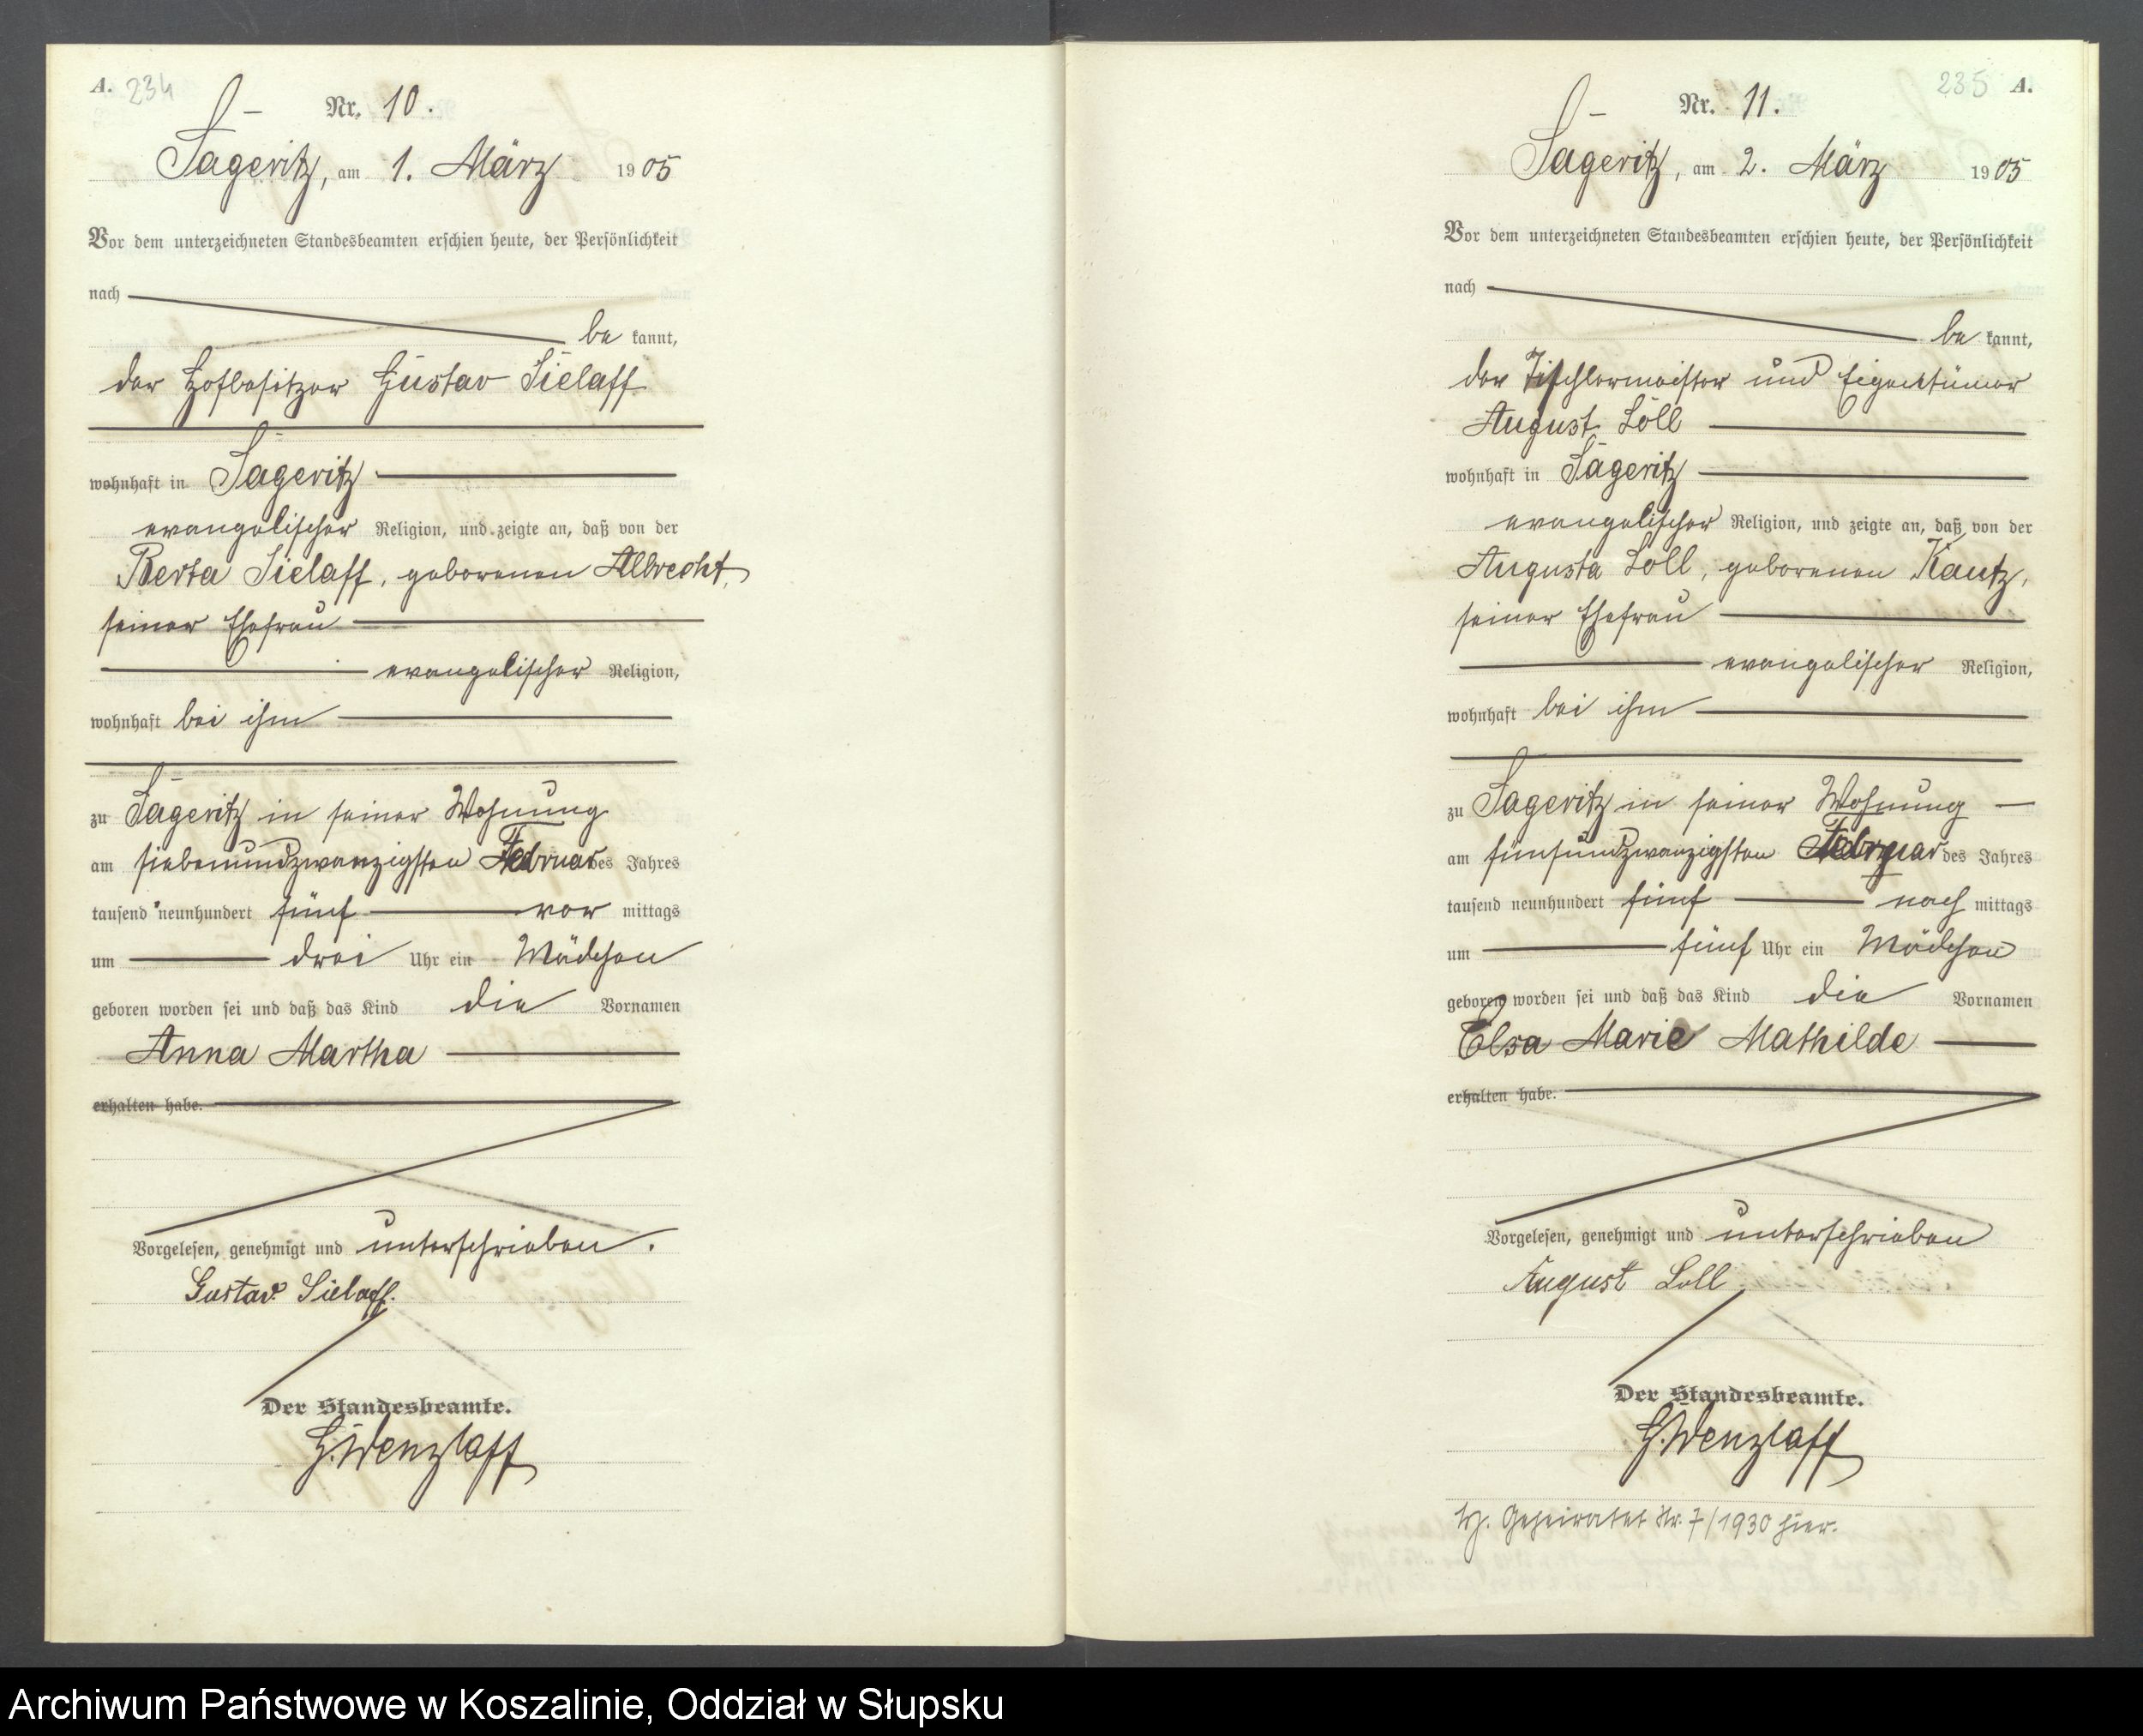 A. 234
Nr. 10.
Sageritz, am 1. März 1905
Vor dem unterzeichneten Standesbeamten erschien heute, der Persönlichkeit
nach
be kannt,
der Hofbesitzer Gustav Sielaff
wohnhaft in Sageritz
evangelischer Religion, und zeigte an, daß von der
Berta Sielaff, geborenen Albrecht,
seiner Ehefrau
evangelischer Religion,
wohnhaft bei ihm
zu Sageritz in seiner Wohnung
am siebenundzwanzigsten Februar des Jahres
tausend neunhundert fünf vor mittags
um drei Uhr ein Mädchen
geboren worden sei und daß das Kind die Vornamen
Anna Martha
erhalten habe.
Vorgelesen, genehmigt und unterschrieben.
Gustav Sielaff.
Der Standesbeamte.
G. Wenzlaff
235 A.
Nr. 11.
Sageritz, am 2. März 1905
Vor dem unterzeichneten Standesbeamten erschien heute, der Persönlichkeit
nach
be kannt,
der Tischlermeister und Eigentümer
August Loll
wohnhaft in Sageritz
evangelischer Religion, und zeigte an, daß von der
Augusta Loll, geborenen Kautz,
seiner Ehefrau
evangelischer Religion,
wohnhaft bei ihm
zu Sageritz in seiner Wohnung
am fünfundzwanzigsten Februar des Jahres
tausend neunhundert fünf nach mittags
um fünf Uhr ein Mädchen
geboren worden sei und daß das Kind die Vornamen
Elsa Marie Mathilde
erhalten habe.
Vorgelesen, genehmigt und unterschrieben
August Loll
Der Standesbeamte.
G. Wenzlaff
Geheiratet Nr. 7/1930 hier.
Archiwum Państwowe w Koszalinie, Oddział w Słupsku